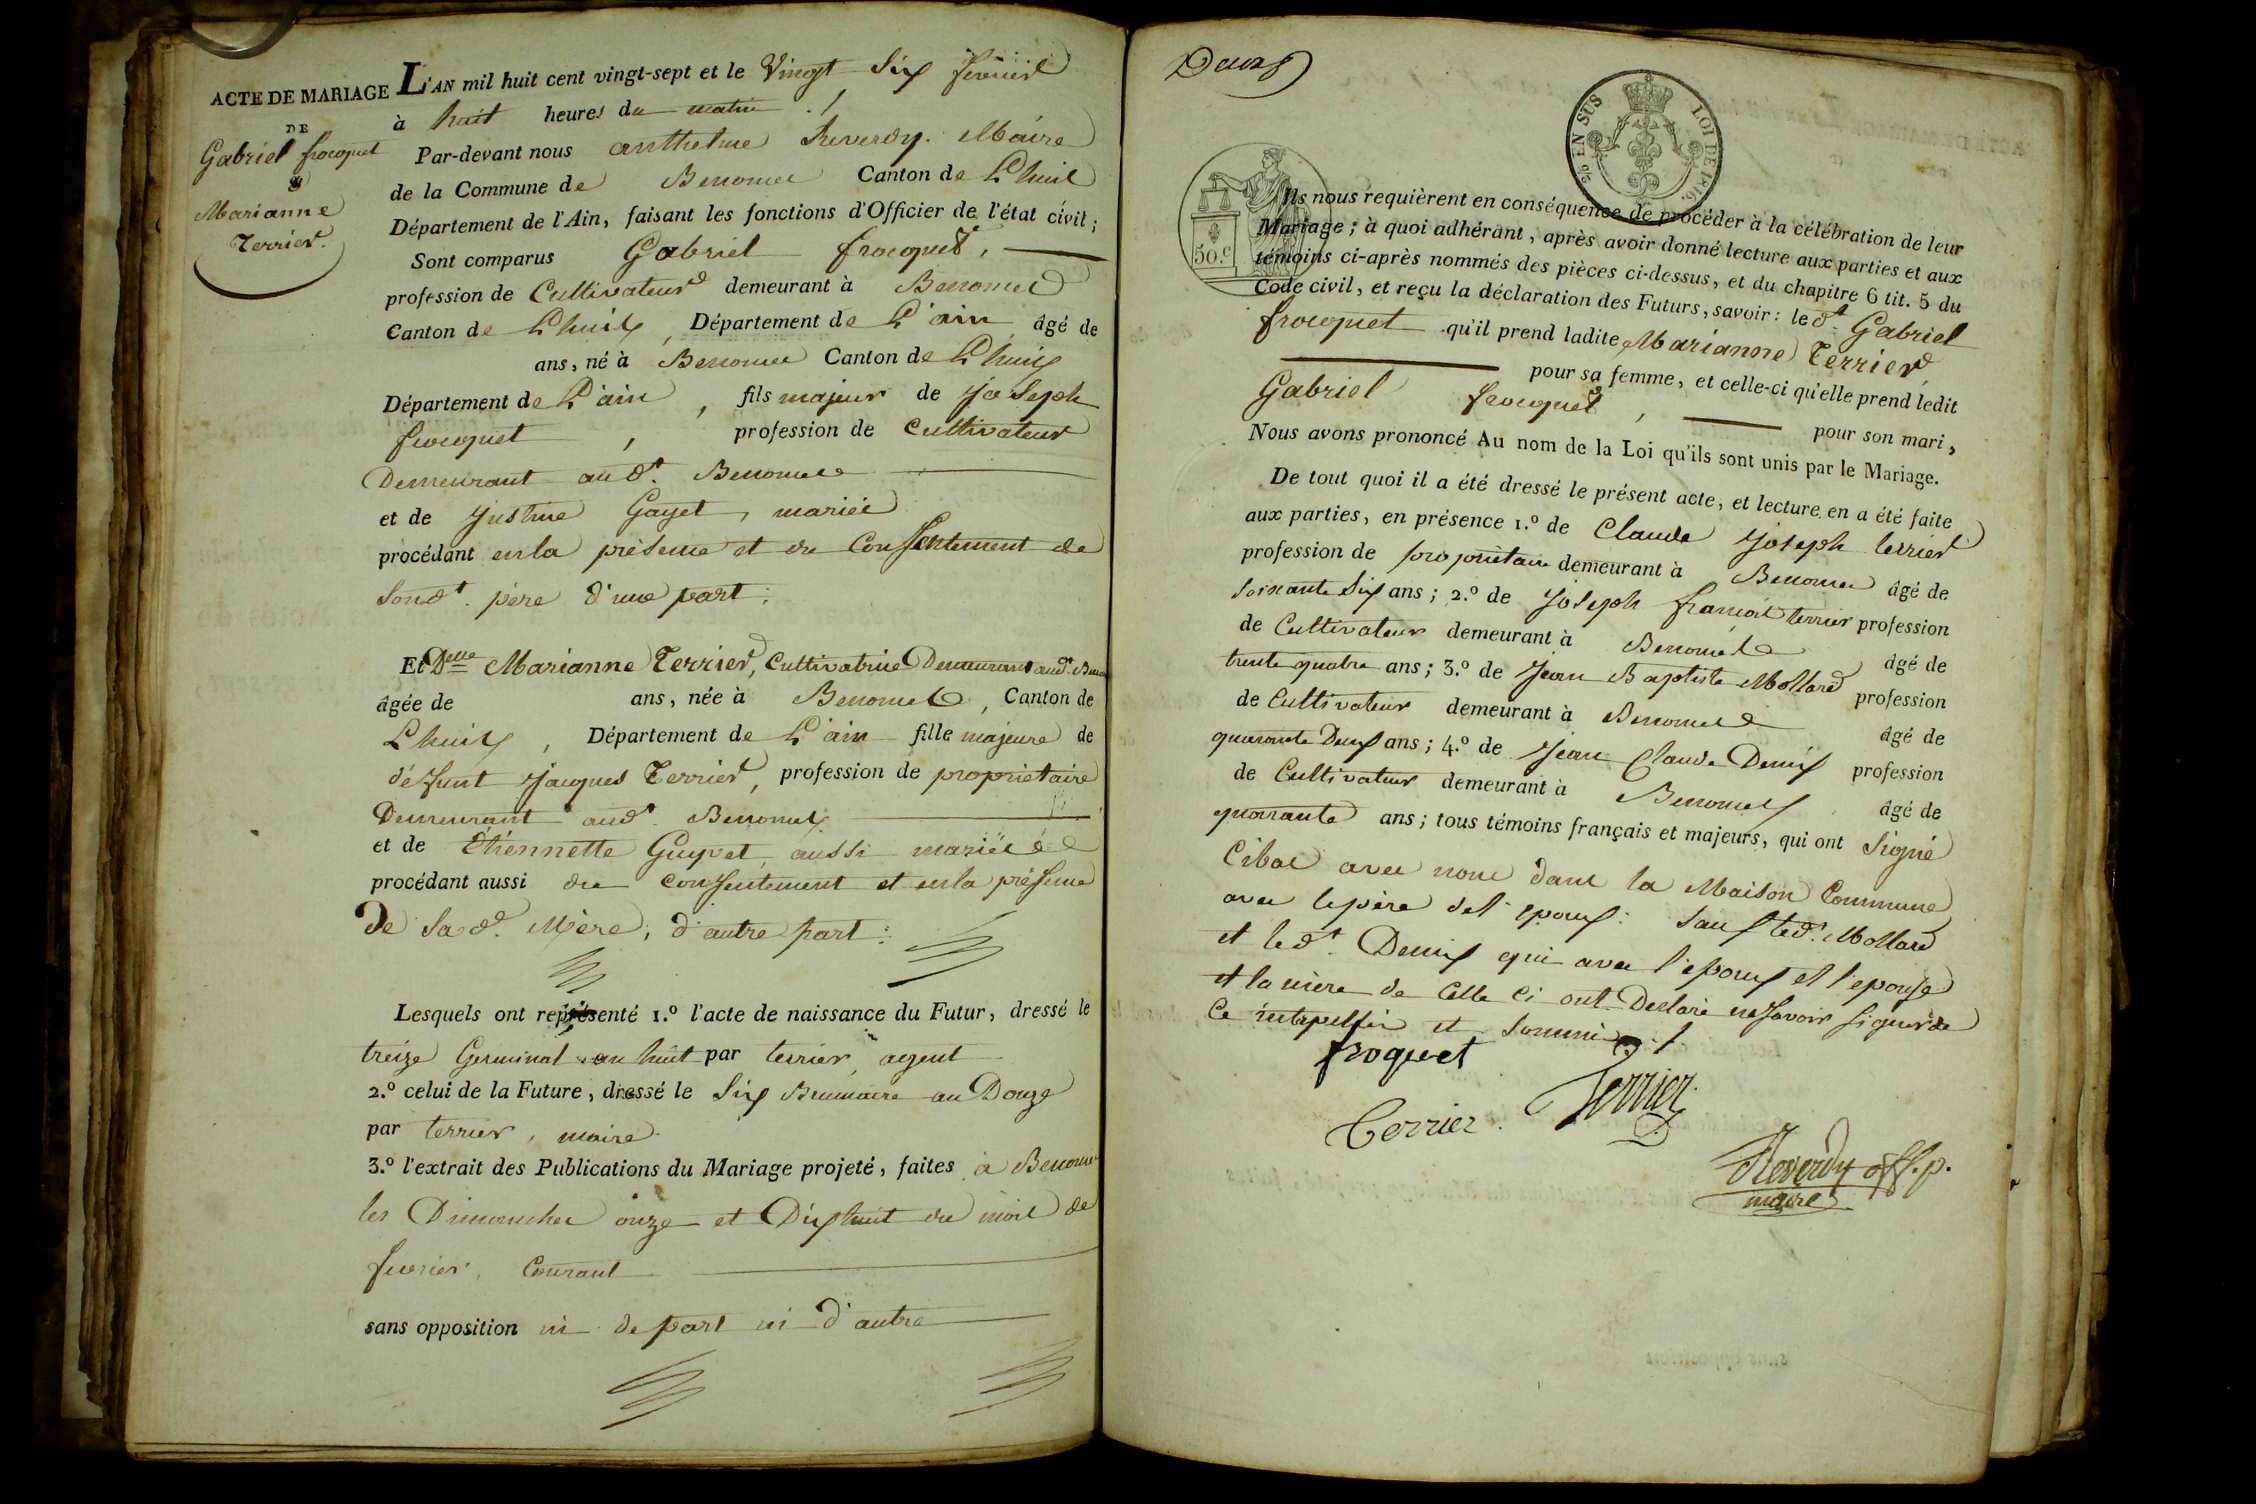 ACTE DE MARIAGE
DE
Gabriel frocquet
&
Marianne
Terrier.
L'AN mil huit cent vingt-sept et le Vingt Six fevrier
à huit heures du matin ./
Par-devant nous anthelme Reverdy. Maire
de la Commune de Benonce Canton de Lhuis
Département de l'Ain, faisant les fonctions d'Officier de l'état civil;
Sont comparus Gabriel frocquet,
profession de Cultivateur demeurant à Benonce
Canton de Lhuis, Département de L'ain âgé de
ans, né à Benonce Canton de Lhuis
Département de L'ain, fils majeur de Joseph
frocquet, profession de Cultivateur
Demeurant aud.t Benonce
et de Justine Gayet, mariée
procédant en la présence et du Consentement de
Sond.t père d'une part;
Et Delle Marianne Terrier, Cultivatrice Demeurant aud.t
âgée de ans, née à Benonce, Canton de
Lhuis, Département de L'ain fille majeure de
défunt Jacques Terrier, profession de propriétaire
Demeurant aud.t Benonce
et de Etiennette Guyvet, aussi mariée
procédant aussi du consentement et en la présence
De Sad. Mère, d'autre part:
Lesquels ont représenté 1.º l'acte de naissance du Futur, dressé le
treize Germinal an huit par terrier, agent
2.º celui de la Future, dressé le Six Brumaire an Douze
par terrier, maire
3.º l'extrait des Publications du Mariage projeté, faites à Benonce
les Dimanches onze et Dix huit du mois de
fevrier, Courant
sans opposition ni de part ni d'autre
2/10 EN SUS
LOI DE 1816.
50.c
Ils nous requièrent en conséquence de procéder à la célébration de leur
Mariage; à quoi adhérant, après avoir donné lecture aux parties et aux
témoins ci-après nommés des pièces ci-dessus, et du chapitre 6 tit. 5 du
Code civil, et reçu la déclaration des Futurs, savoir: le d.t Gabriel
frocquet qu'il prend ladite Marianne Terrier,
pour sa femme, et celle-ci qu'elle prend ledit
Gabriel frocquet, pour son mari,
Nous avons prononcé Au nom de la Loi qu'ils sont unis par le Mariage.
De tout quoi il a été dressé le présent acte, et lecture en a été faite
aux parties, en présence 1.º de Claude Joseph terrier
profession de propriétaire demeurant à Benonce âgé de
soixante Six ans; 2.º de Joseph francois terrier profession
de Cultivateur demeurant à Benonce âgé de
trente quatre ans; 3.º de Jean Baptiste Mollard profession
de Cultivateur demeurant à Benonce âgé de
quarante Deux ans; 4.º de Jean Claude Denis profession
de Cultivateur demeurant à Benonce âgé de
quarante ans; tous témoins français et majeurs, qui ont Signé
avec nous dans la Maison Commune
avec le père de l'epoux: Sauf led.t Mollard
et led.t Denis qui avec l'epoux et l'epouse
et la mère de Celle Ci ont Declaré ne Savoir Signer de
Ce interpellés et Sommés ./.
froquet
Terrier
Terrier.
Reverdy off. p.
maire